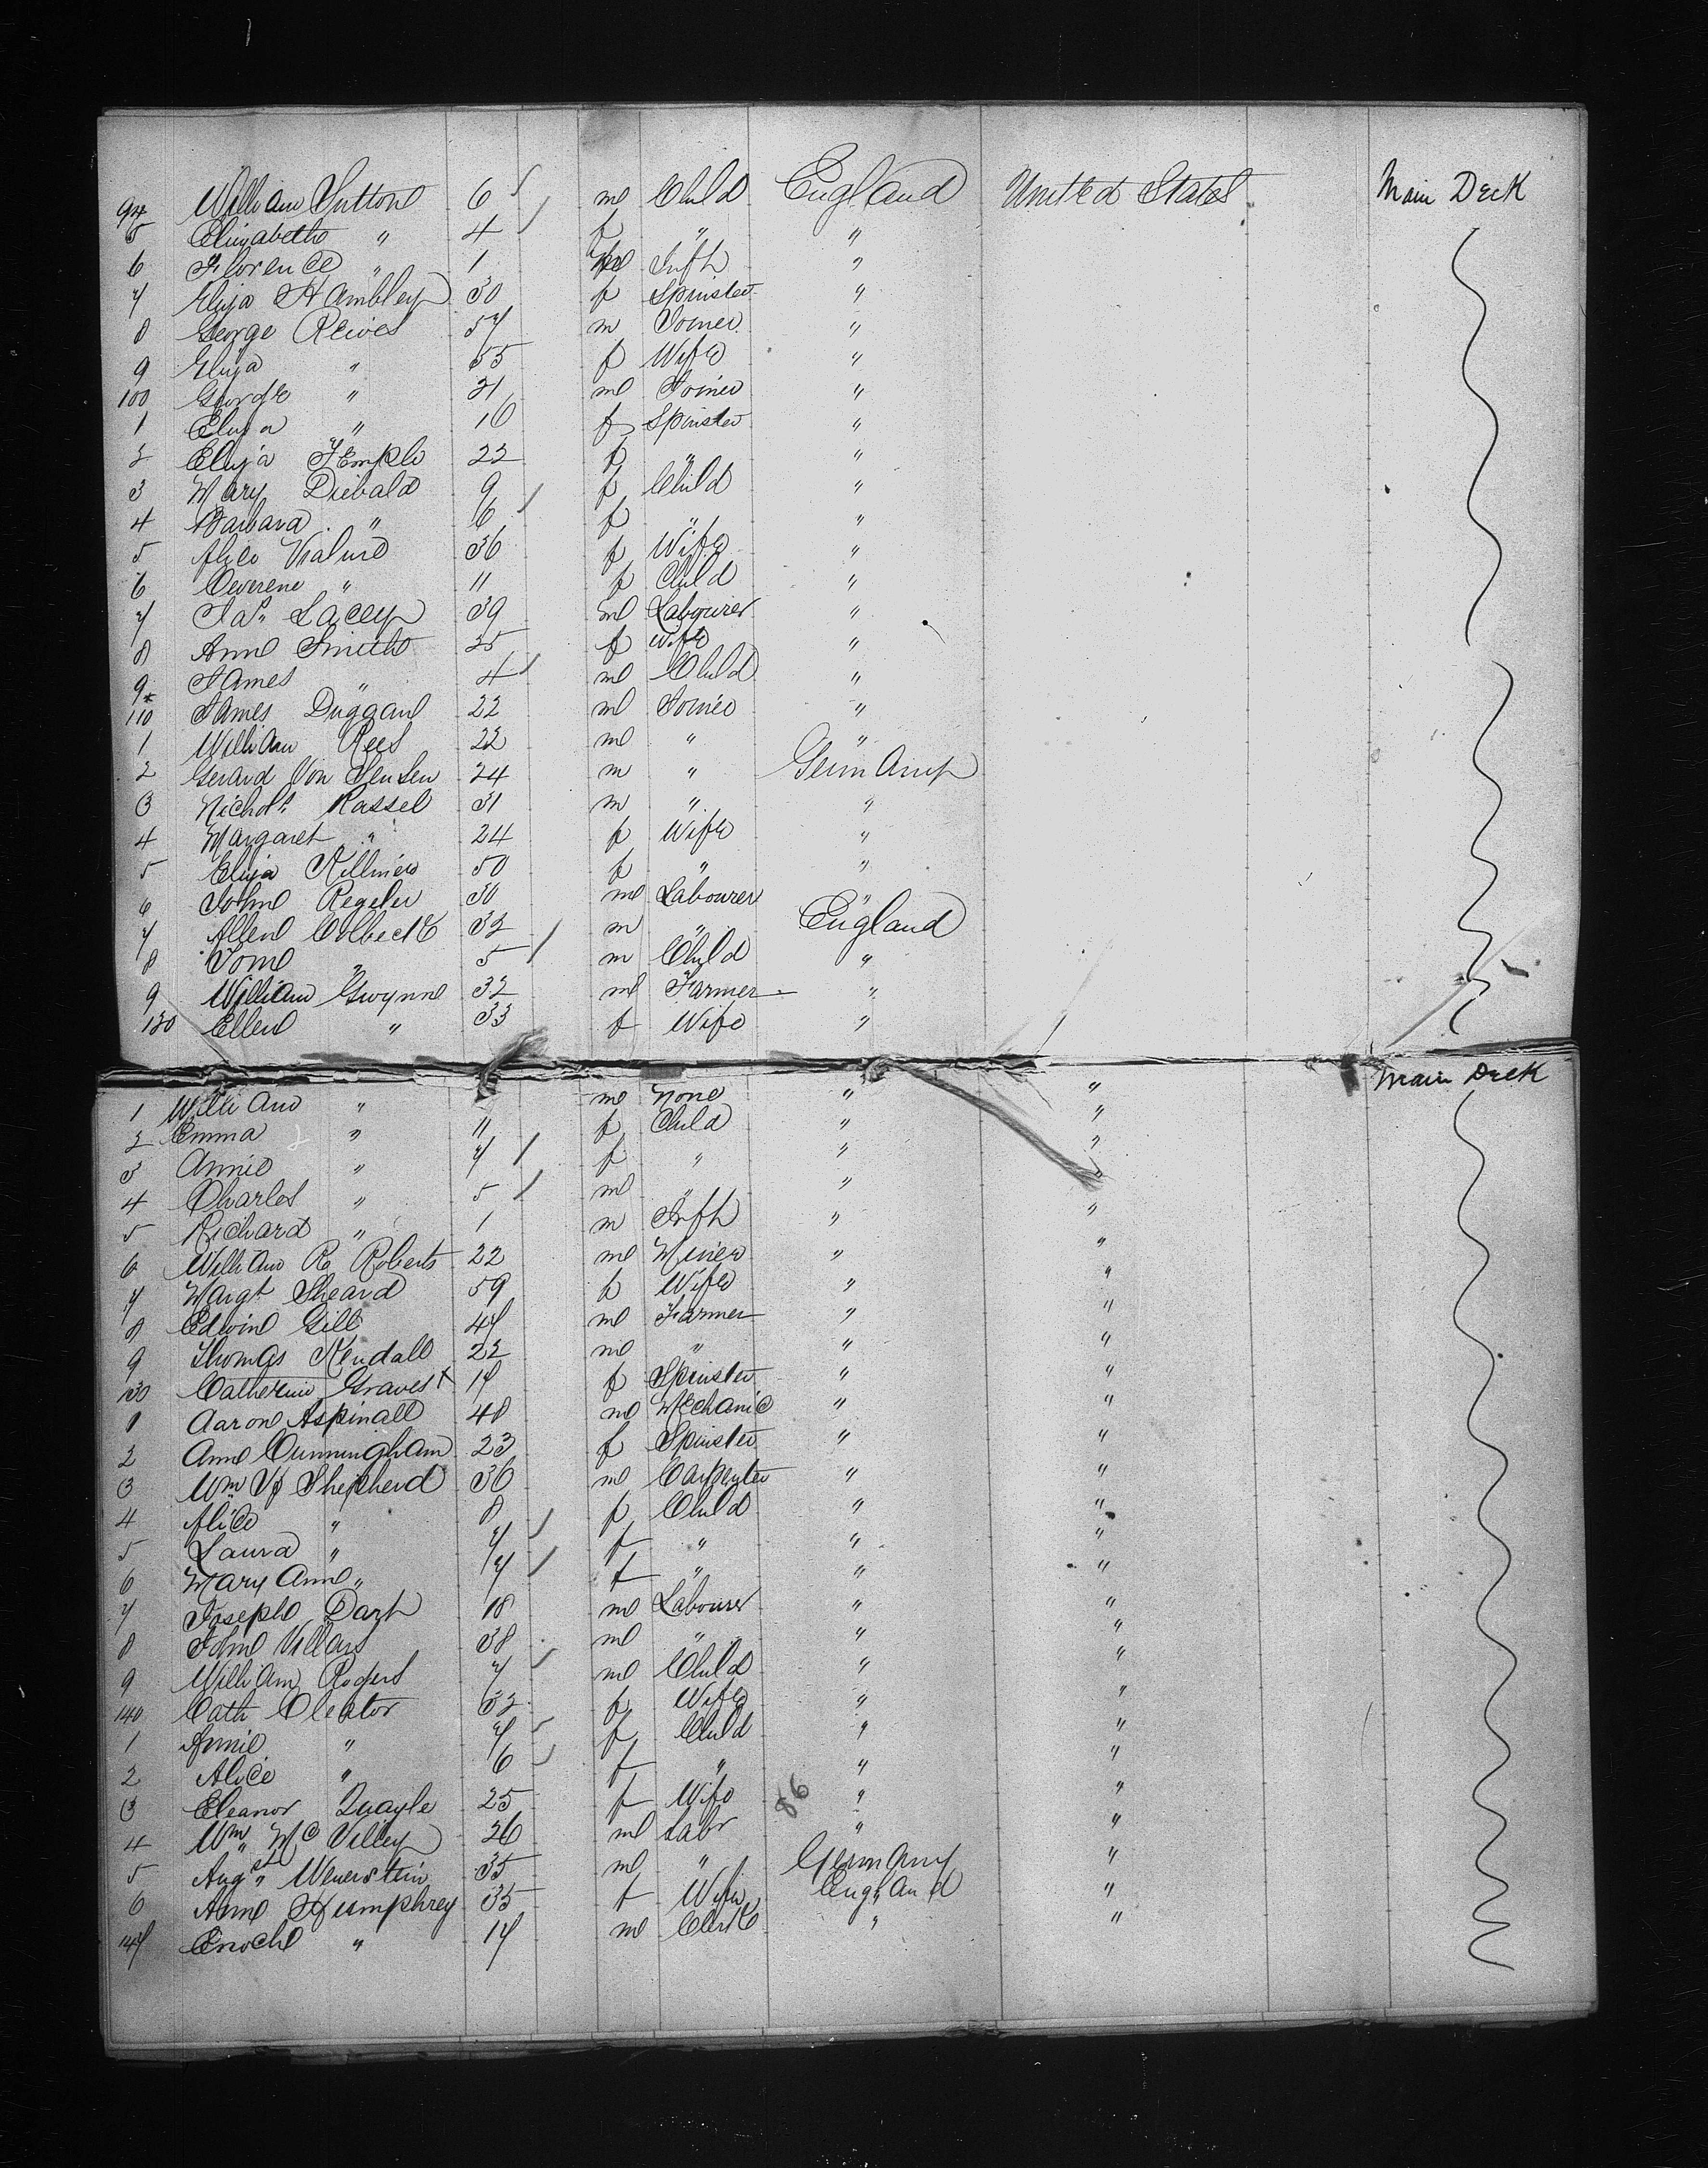 94 William Sutton 6 m Child England United States Main Deck
5 Elizabeth " 4 f " "
6 Florence " 1 Inft "
7 Eliza Hambley 30 f Spinster "
8 George Reives 57 m Joiner "
9 Eliza " 55 f Wife "
100 George " 21 m Joiner "
1 Eliza " 16 f Spinster "
2 Eliza Temple 22 f " "
3 Mary Diebald 9 f Child "
4 Barbara " 6 f " "
5 Alice 36 f Wife "
6 " 11 f Child "
7 Jas. Lacey 39 m Labourer "
8 Ann Smith 25 f Wife "
9 James " 4 m Child "
110 James Duggan 22 m Joiner "
1 William Rees 22 m " "
2 Gerard Von 24 m " Germany
3 Nichols Kassel 31 m " "
4 Margaret " 24 f Wife "
5 Eliza Killmier 50 f " "
6 John Regeler 30 m Labourer "
7 Allen Colbeck 32 m " England
8 Tom " 5 m Child "
9 William Gwynne 32 m Farmer "
120 Ellen " 33 f Wife "
1 William " m None " " Main Deck
2 Emma " 11 f Child " "
3 Annie " 7 f " " "
4 Charles " 5 m " " "
5 Richard " 1 m Inft " "
6 William R Roberts 22 m Miner " "
7 Margt Sheard 59 f Wife " "
8 Edwin Gill 47 m Farmer " "
9 Thomas Kendall 22 m " " "
130 Catherine Graves 17 f Spinster " "
1 Aaron Aspinall 48 m Mechanic " "
2 Ann Cunningham 23 f Spinster " "
3 Wm Shepherd 36 m Carpenter " "
4 Alice " 8 f Child " "
5 Laura " 7 f " " "
6 Mary Ann " 7 f " " "
7 Joseph Dart 18 m Labourer " "
8 John Villars 38 m " " "
9 William Rogers 7 m Child " "
140 Cath Cleator 32 f Wife " "
1 Annie " 7 f Child " "
2 Alice " 6 f " " "
3 Eleanor Quayle 25 f Wife 86 " "
4 Wm Mc Villey 26 m Labr " "
5 Augst 35 m " Germany "
6 Ann Humphrey 35 f Wife England "
147 Enoch " 17 m Clerk " "